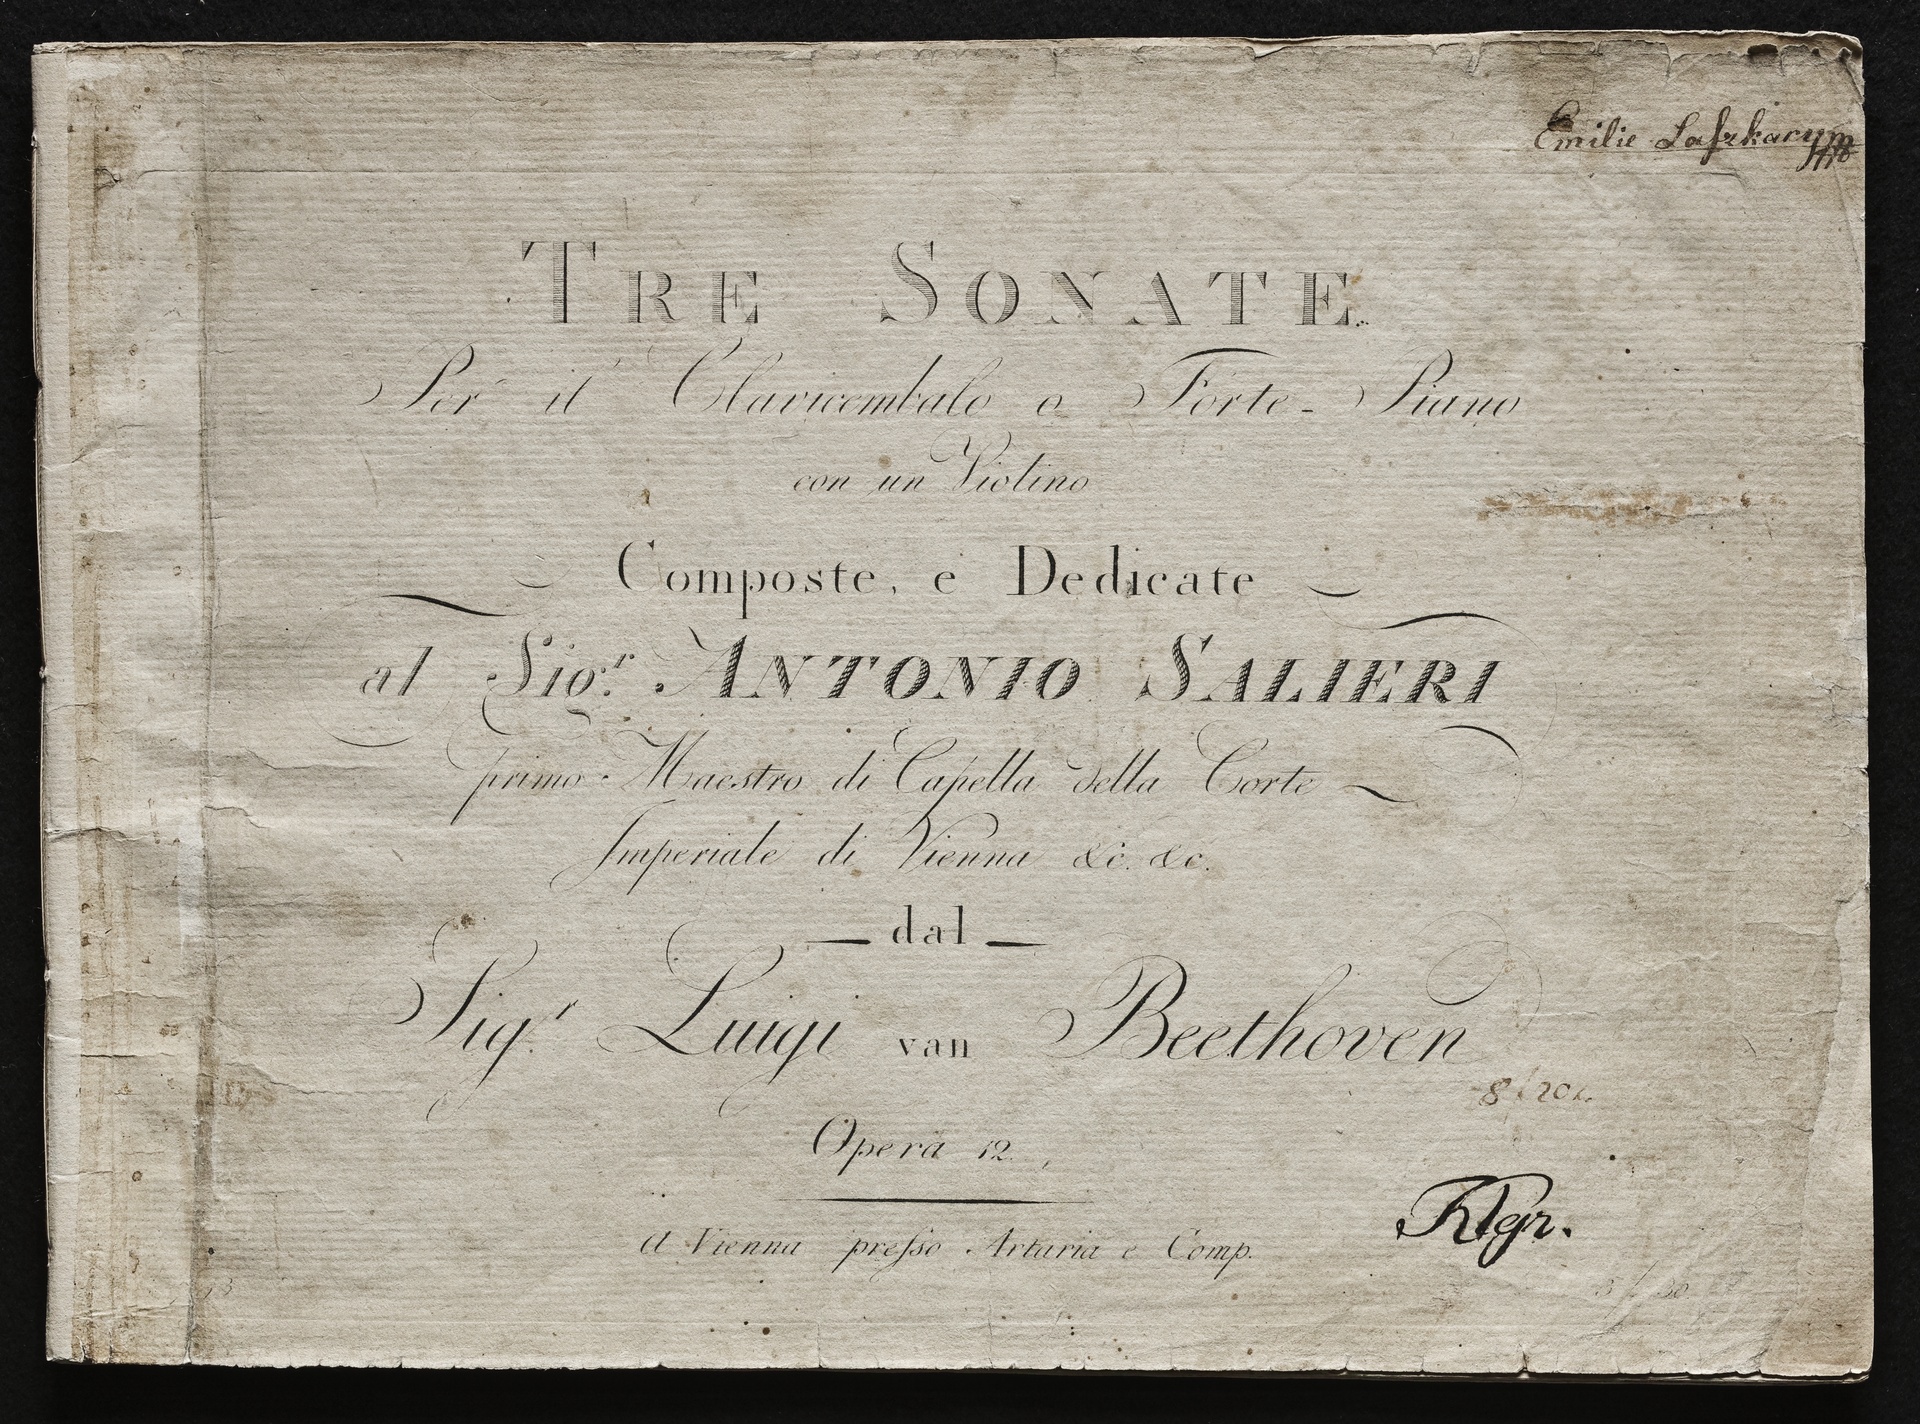 Emilie
TRE SONATE.
Per il Clavicembalo o Forte-Piano
con un Violino
Composte, e Dedicate
al Sig.r ANTONIO SALIERI
primo Maestro di Capella della Corte
Imperiale di Vienna &c. &c.
— dal —
Sig.r Luigi van Beethoven
Opera 12.
a Vienna preſso Artaria e Comp.